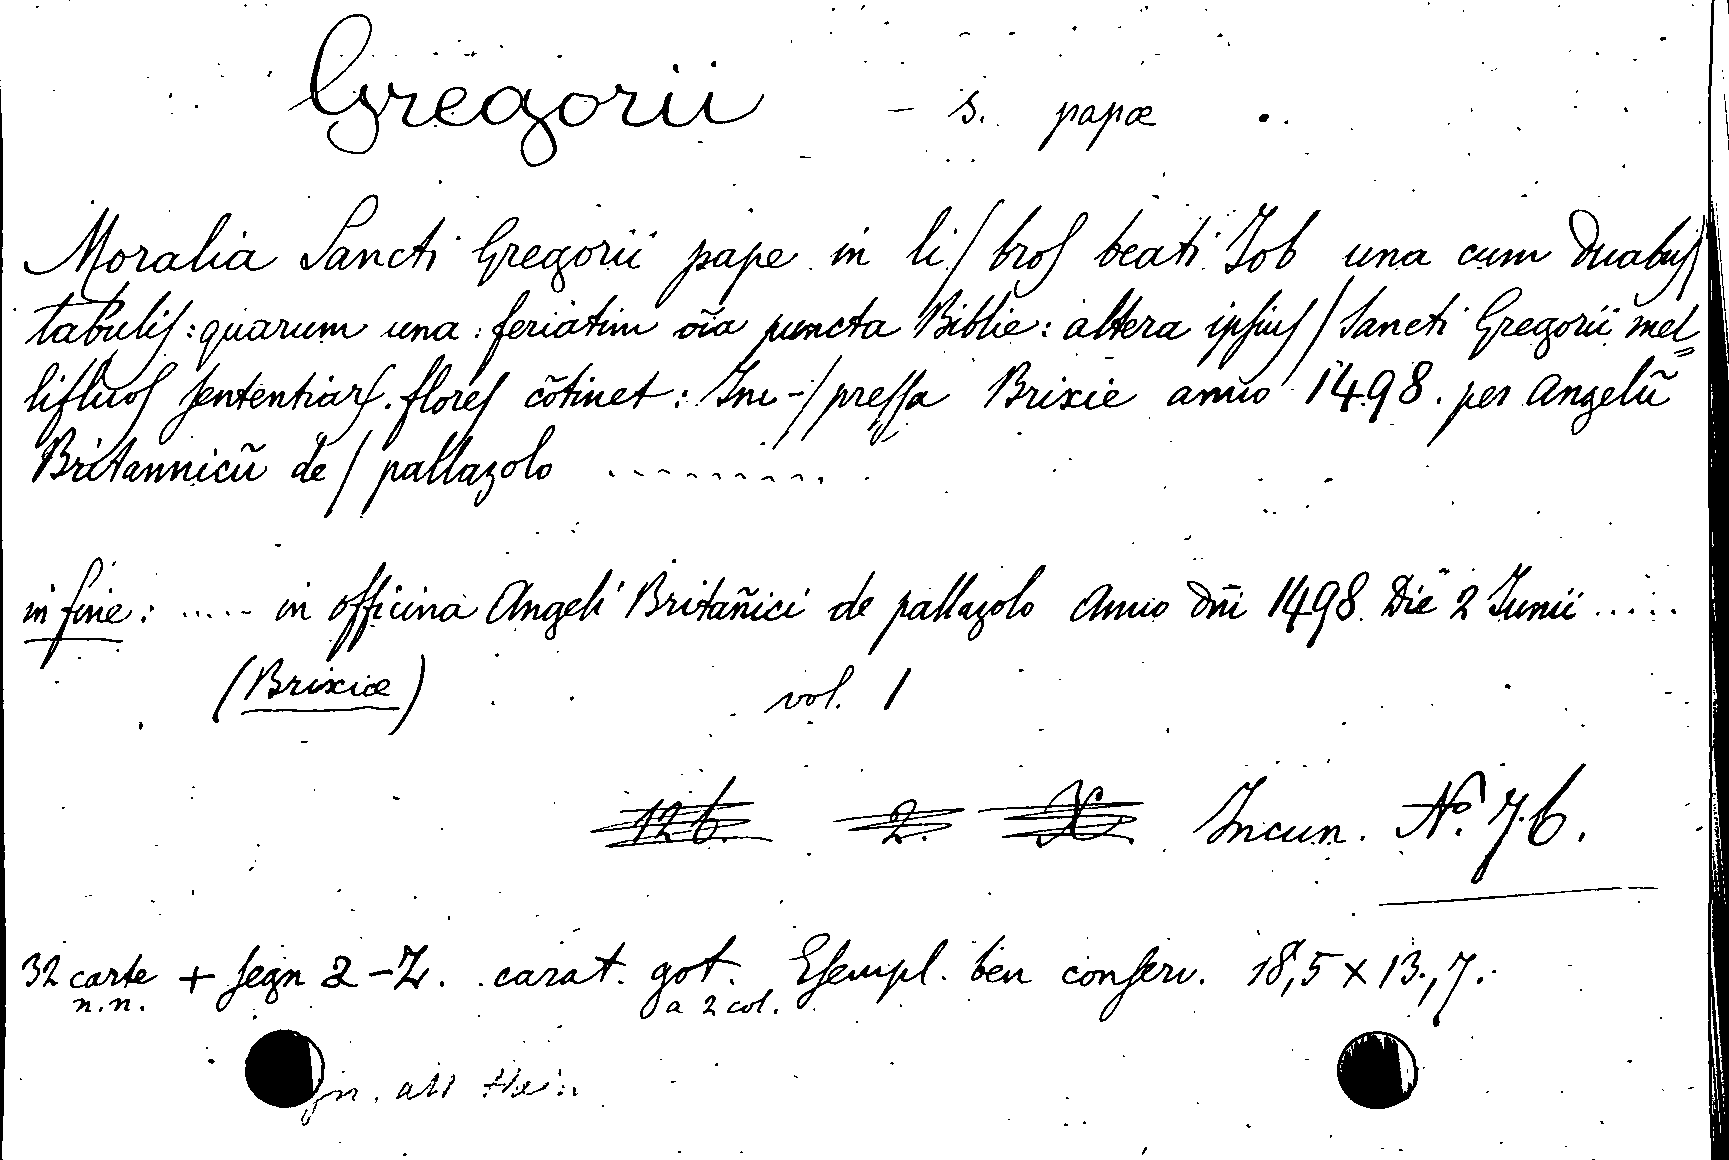 Gregorii - S. papæ
Moralia Sancti Gregorii pape in li/broſ beati Job una cum Duabuſ
tabuliſ: quarum una feriatim oi͂a puncta Biblie: altera ipſiuſ/Sancti Gregorii mel=
lifluoſ ſententiarſ. floreſ cõtinet: Im-/preſſa Brixie anno 1498. per Angelũ
Britannicũ de/pallazolo .........
in fine: ..... in officina Angeli Britañici de pallazolo Anno Dñi 1498 Die 2 Junii .....
(Brixiæ) vol. 1
126. 2. X. Incun. No. 76.
32 carte + ſegn a-Z. carat. got. Eſempl. ben conſerv. 18,5 x 13,7.
n.n. a 2 col.